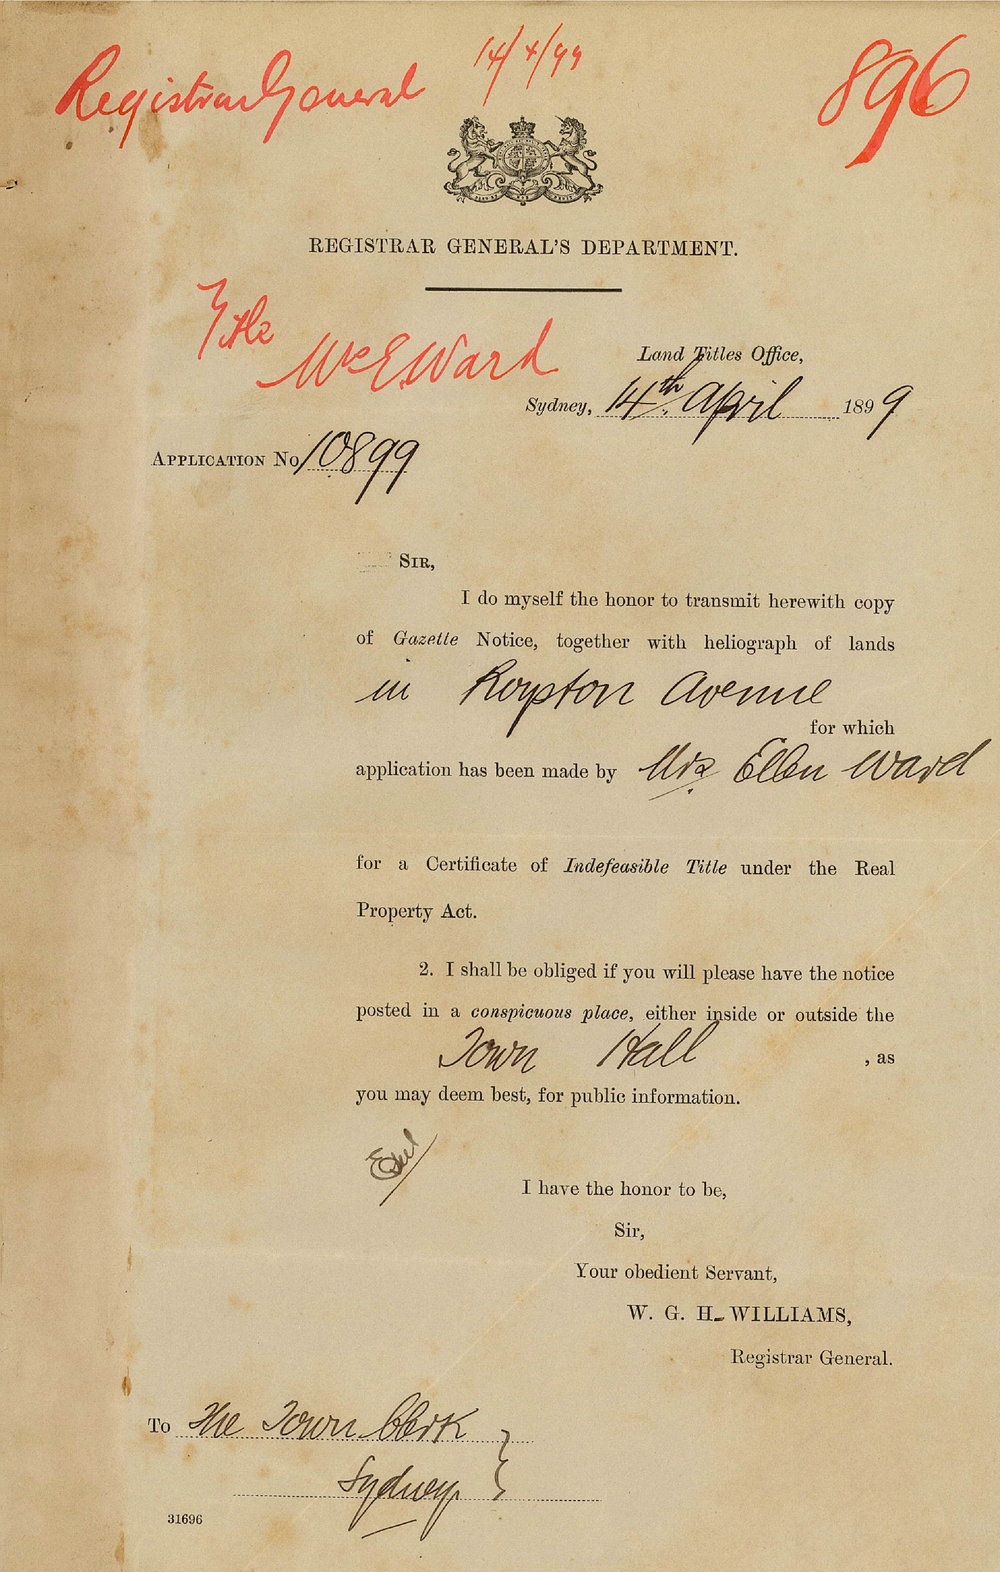 Registrar General
14/4/99
896
REGISTRAR GENERAL'S DEPARTMENT.
Title
Mrs E. Ward
Land Titles Office,
Sydney, 14th April 1899
APPLICATION No 10899
SIR,
I do myself the honor to transmit herewith copy
of Gazette Notice, together with heliograph of lands
in Royston Avenue
for which
application has been made by Mrs Ellen Ward
for a Certificate of Indefeasible Title under the Real
Property Act.
2. I shall be obliged if you will please have the notice
posted in a conspicuous place, either inside or outside the
Town Hall , as
you may deem best, for public information.
I have the honor to be,
Sir,
Your obedient Servant,
W. G. H. WILLIAMS,
Registrar General.
To The Town Clerk
Sydney
31696